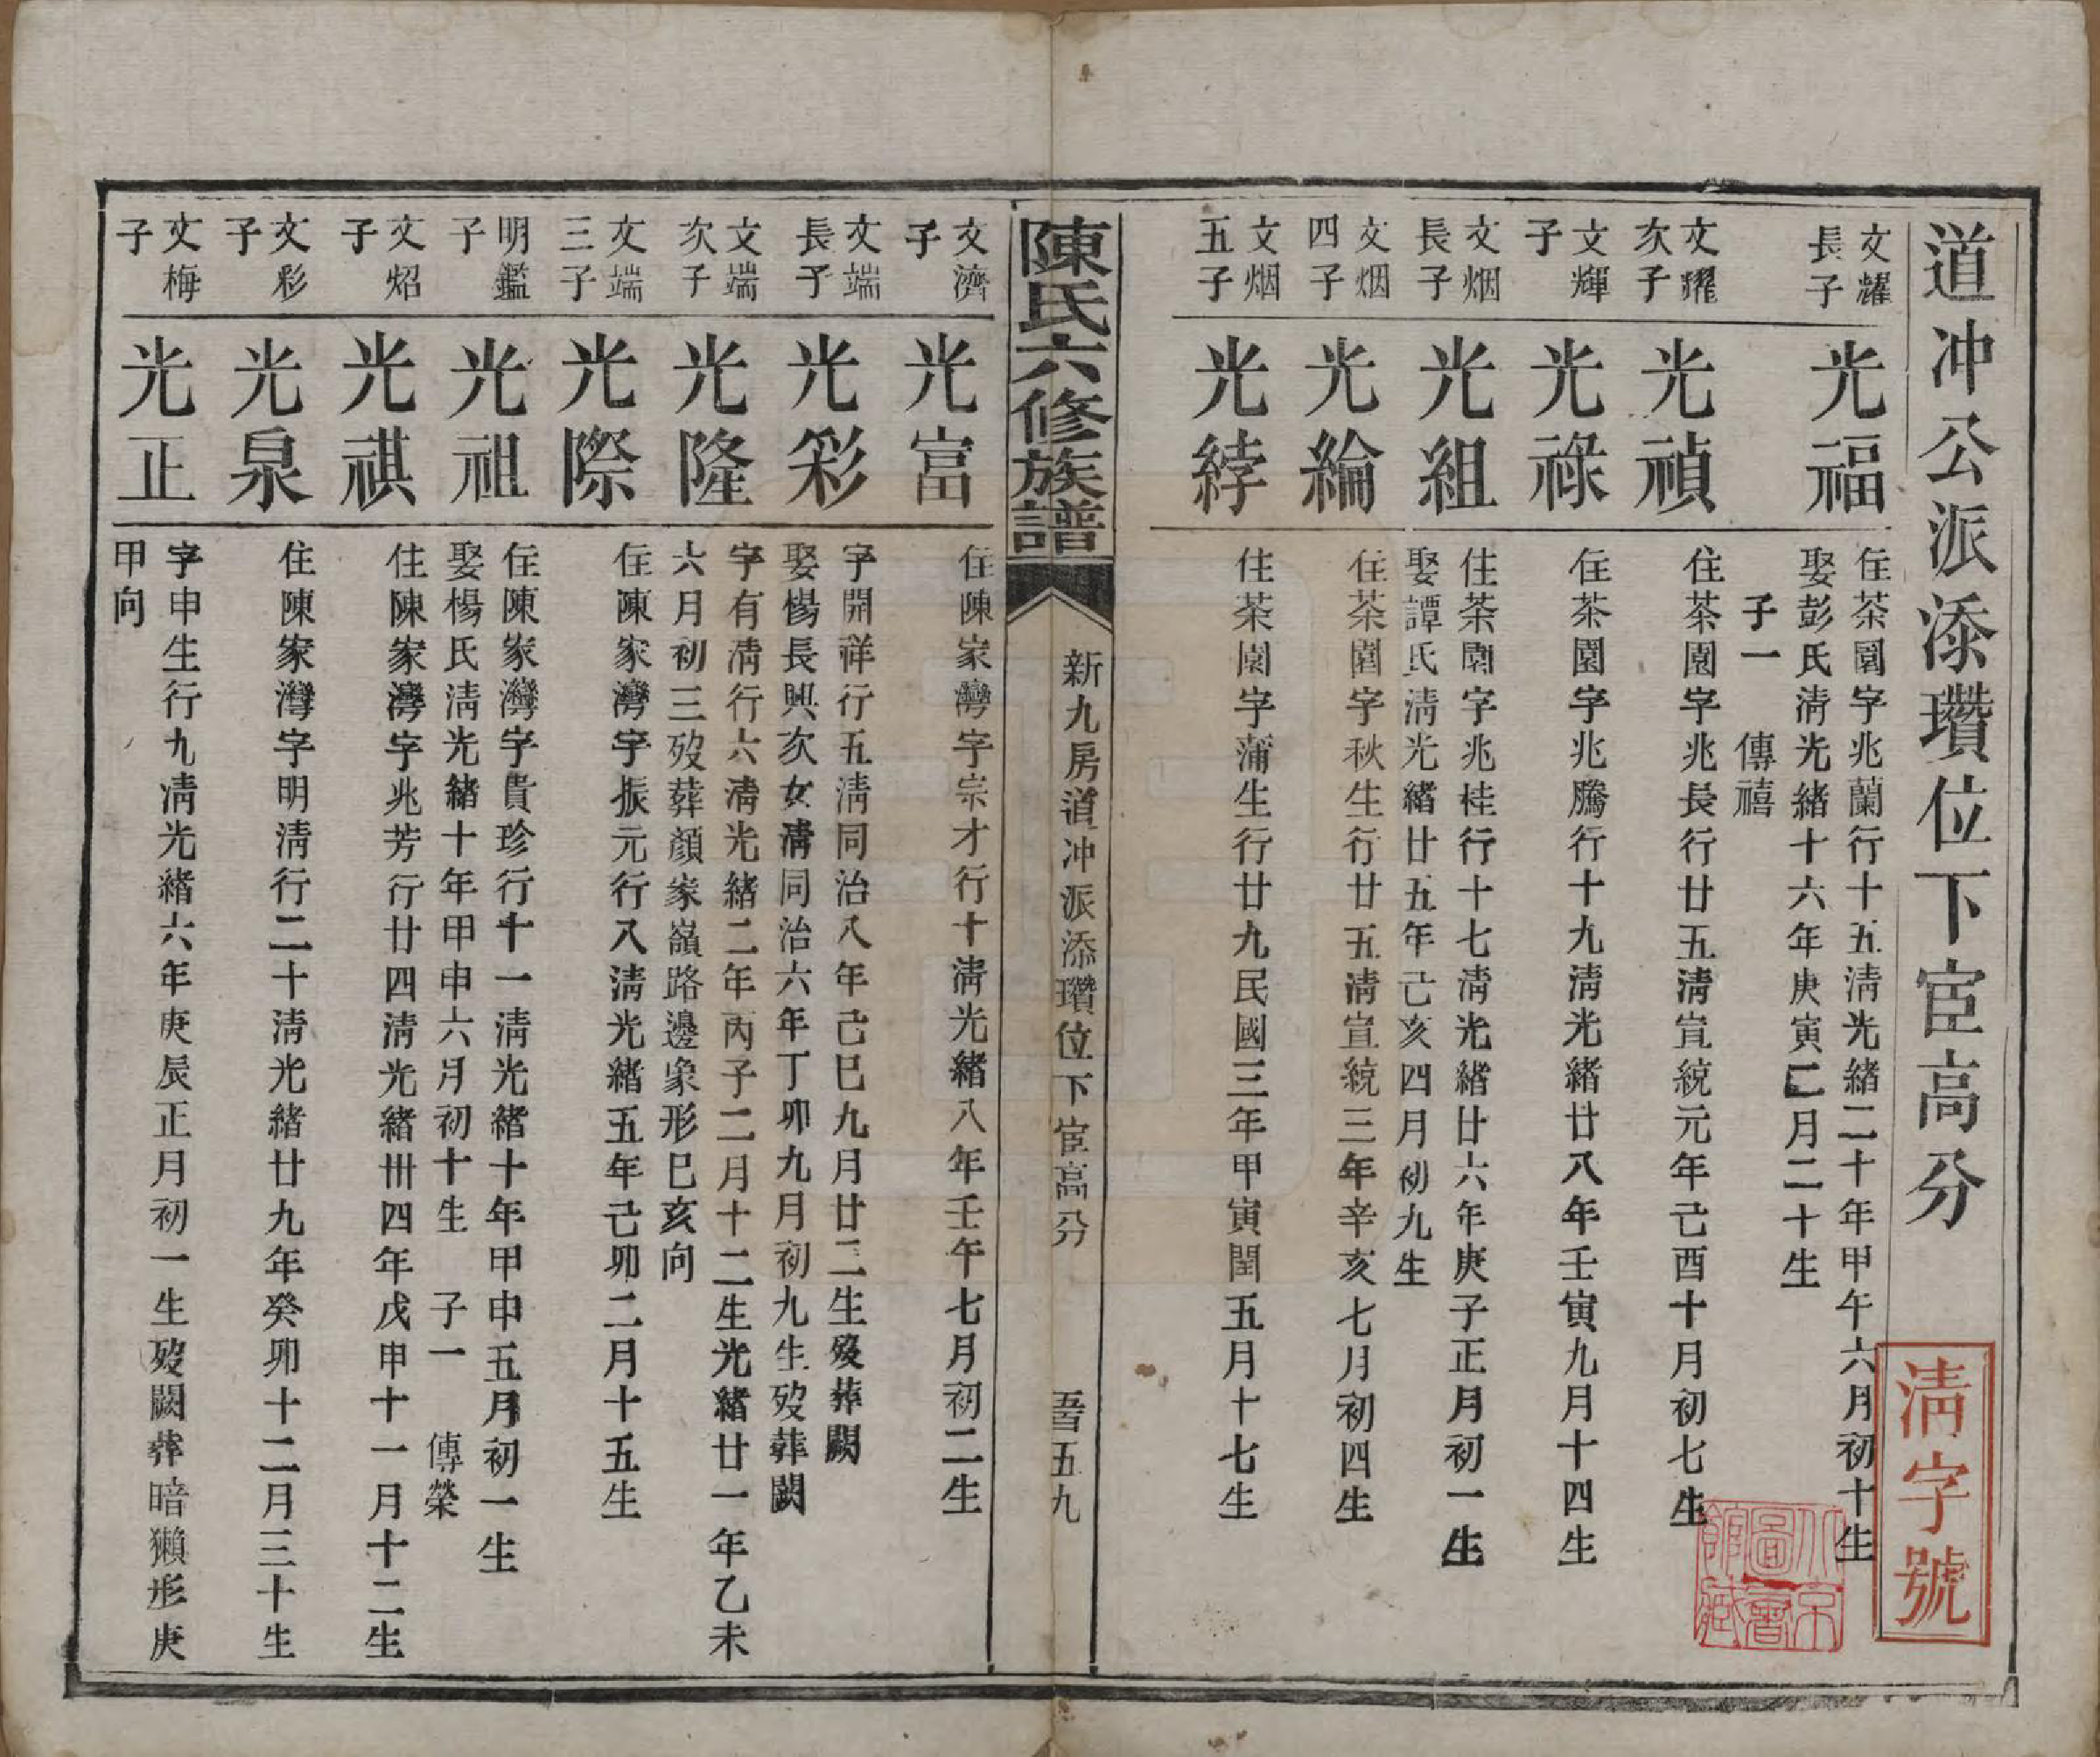 道冲公派添瓚位下宦高分
清字號
文耀長子
光福
住茶園字兆蘭行十五清光緒二十年甲午六月初十生
娶彭氏清光緒十六年庚寅二月二十生
子一　傳禧
文耀次子
光禎
住茶園字兆長行廿五清宣統元年己酉十月初七生
文輝子
光祿
住茶園字兆騰行十九清光緒廿八年壬寅九月十四生
文烟長子
光組
住茶園字兆桂行十七清光緒廿六年庚子正月初一生
娶譚氏清光緒廿五年己亥四月初九生
文烟四子
光綸
住茶園字秋生行廿五清宣統三年辛亥七月初四生
文烟五子
光綍
住茶園字蒲生行廿九民國三年甲寅閏五月十七生
陳氏六修族譜
新九房道冲派添瓚位下宦高分
五百五九
文濟子
光富
住陳家灣字宗才行十清光緒八年壬午七月初二生
文端長子
光彩
字開祥行五清同治八年己巳九月廿二生歿葬闕
娶楊長興次女清同治六年丁卯九月初九生歿葬闕
文端次子
光隆
字有清行六清光緒二年丙子二月十二生光緒廿一年乙未
六月初三歿葬顏家嶺路邊象形巳亥向
文端三子
光際
住陳家灣字振元行八清光緒五年己卯二月十五生
明鑑子
光祖
住陳家灣字貴珍行十一清光緒十年甲申五月初一生
娶楊氏清光緒十年甲申六月初十生　子一　傳榮
文炤子
光祺
住陳家灣字兆芳行廿四清光緒卅四年戊申十一月十二生
文彩子
光泉
住陳家灣字明清行二十清光緒廿九年癸卯十二月三十生
文梅子
光正
字申生行九清光緒六年庚辰正月初一生歿闕葬暗獺形庚
甲向